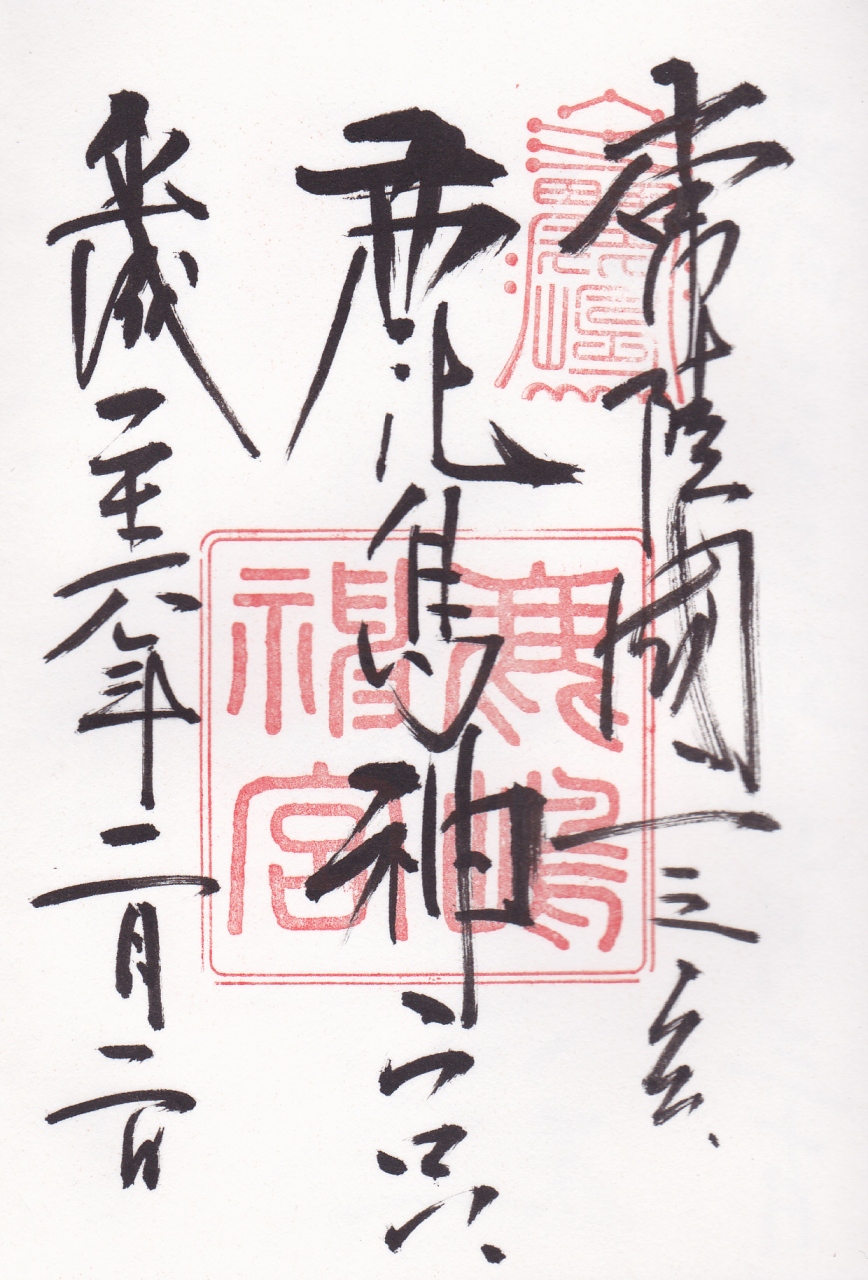 常陸國一之宮
鹿島神宮
平成二十六年二月二日
鹿嶋
神宮